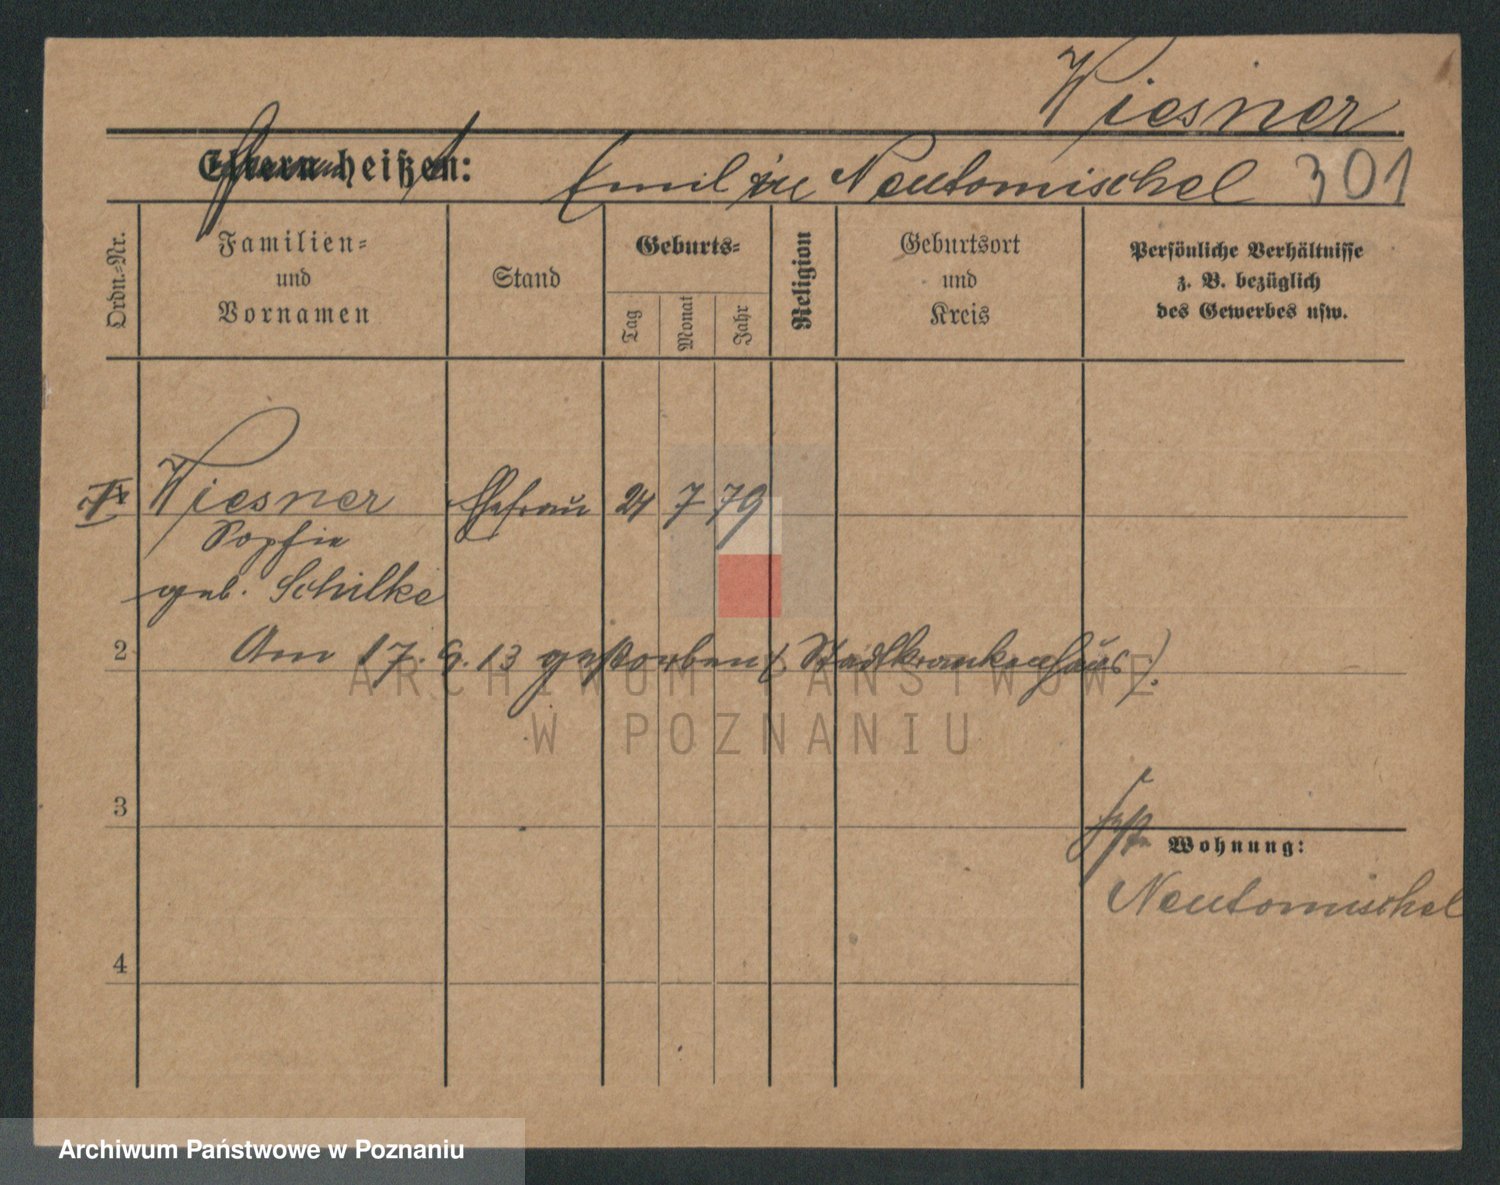 Wiesner
Eltern heißen: Emil in Neutomischel 301
Ordn.=Nr.
Familien=
und
Vornamen
Stand
Geburts=
Tag
Monat
Jahr
Religion
Geburtsort
und
Kreis
Persönliche Verhältnisse
z. B. bezüglich
des Gewerbes usw.
Wiesner Ehefrau 24 7 79
Sophie
geb. Schilke
2 Am 17. 9. 13 gestorben (Stadtkrankenhaus).
ARCHIWUM PAŃSTWOWE
W POZNANIU
3
Wohnung:
Neutomischel
4
Archiwum Państwowe w Poznaniu